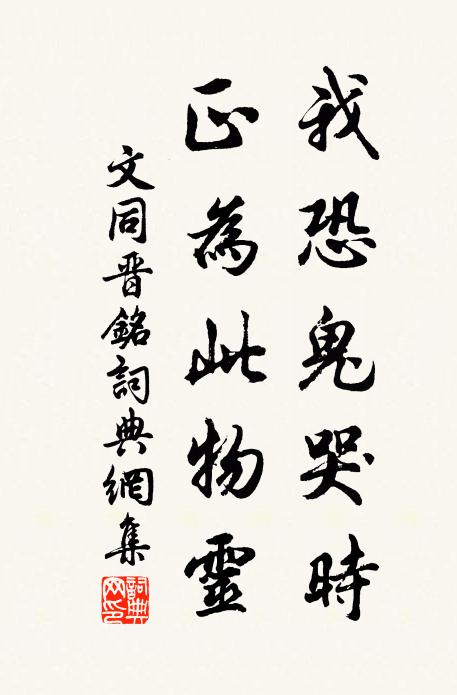 我恐鬼哭時
正為此物靈
文同晋銘詞典網集
詞典
网印